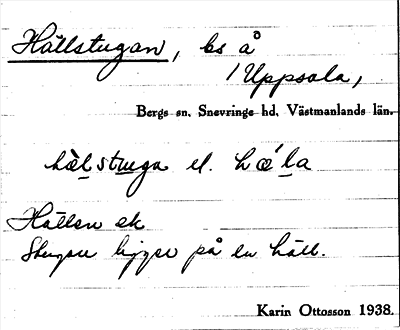 Hällstugan, bs å
/ Uppsala,
Bergs sn. Snevringe hd. Västmanlands län.
hälstuga el. hæ´la
Hällen ek
Stugan ligger på en häll.
Karin Ottosson 1938.